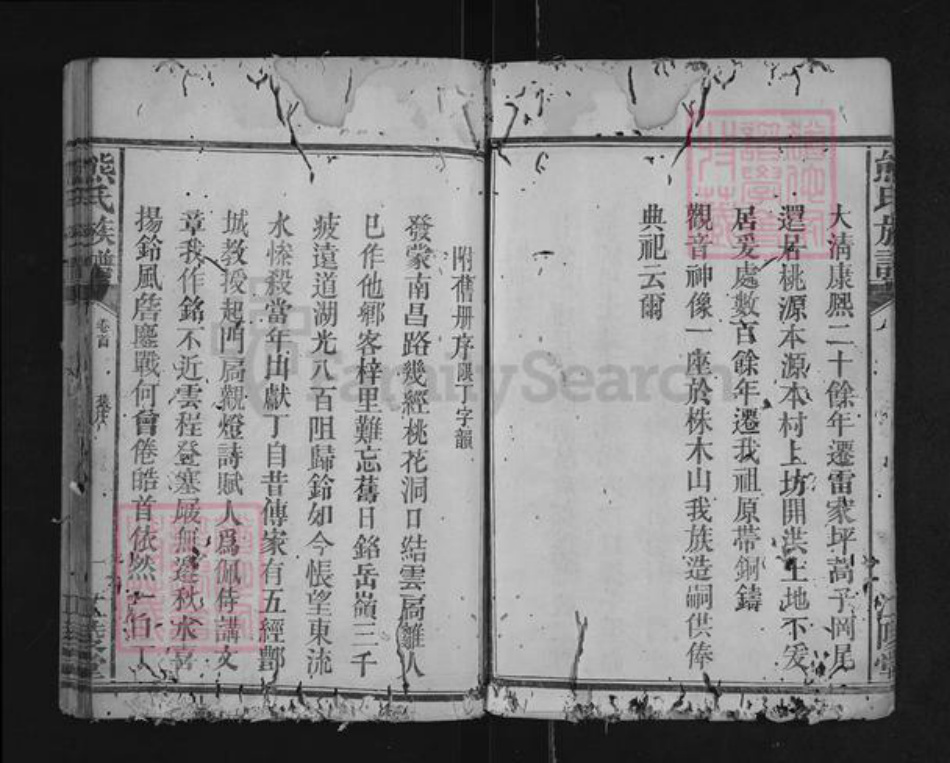 大淸康熙二十餘年遷雷家坪蒿子岡尾
還居桃源本源本村上坊開洪土地不爰
居爰處數百餘年遷我祖原帶銅鑄
觀音神像一座於株木山我族造嗣供俸
典祀云爾
附舊册序限丁字韻
發蒙南昌路幾經桃花洞口結雲扃離人
已作他鄉客梓里難忘舊日銘岳嶺三千
疲遠道湖光八百阻歸鈴如今悵望東流
水慘殺當年出獻丁自昔傳家有五經酆
城教授起門扃觀燈詩賦人爲佩侍講文
章我作銘不近雲程登塞屐無邊秋水喜
揚鈴風詹鏖戰何曾倦皓首依然一白丁
熊氏族譜
卷首
熊氏族譜
FamilySearch